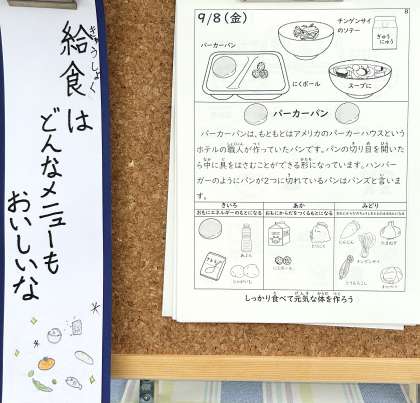 給食は
きゅうしょく
どんなメニューも
おいしいな
8
9/8(金)
チンゲンサイ
のソテー
ぎゅう
にゅう
パーカーパン
にくボール
スープに
パーカーパン
パーカーパンは、もともとはアメリカのパーカーハウスという
ホテルの職人が作っていたパンです。パンの切り目を開いた
ら中に具をはさむことができる形になっています。ハンバー
ガーのようにパンが2つに切れているパンはバンズと言いま
す。
きいろ あか みどり
おもにエネルギーのもとになる おもにからだをつくるもとになる
にんじん
たまねぎ
チンゲンサイ
にくボール
じゃがいも
とうもろこし
キャベツ
しっかり食べて元気な体を作ろう